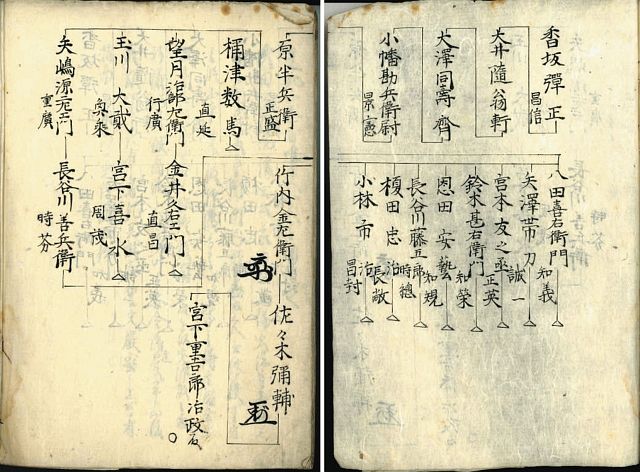 香坂彈正
昌信
大井隨翁軒
大澤同壽齊
小幡勘兵衛尉
景憲
八田喜右衛門
知義
矢澤帯刀
誠一
宮本友之丞
正英
鈴木甚右衛門
知榮
恩田安藝
知規
長谷川藤五郎
時總
榎田忠治
長敞
小林市治
昌封
原半兵衛
正盛
桶津数馬
直延
望月治郎左衛門
行廣
玉川大貳
矢嶋源左衛門
重廣
竹内金左衛門
金井久右エ門
直昌
宮下喜水
長谷川善兵衛
時芬
佐々木彌輔
宮下重吉郎治政